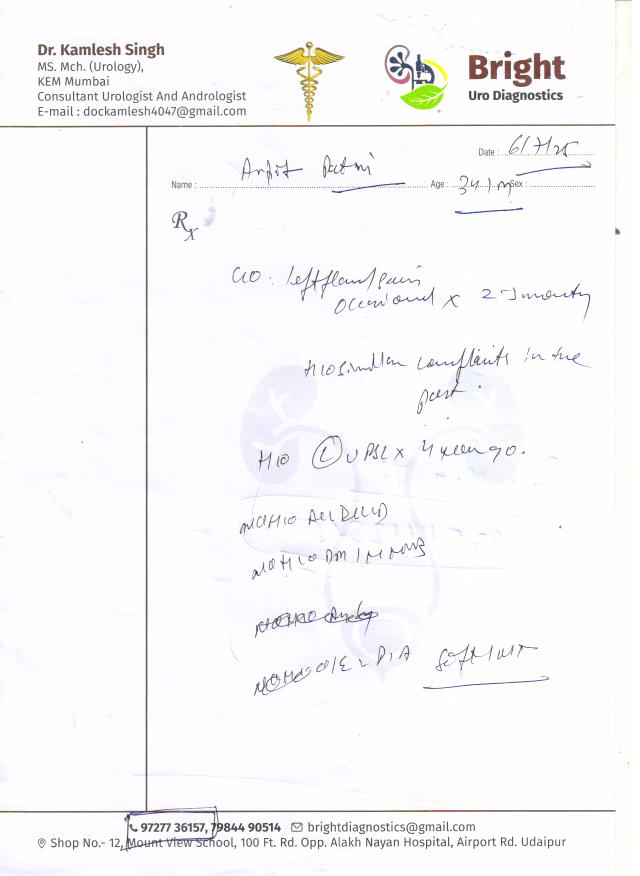 Dr. Kamlesh Singh
MS. Mch. (Urology),
KEM Mumbai
Consultant Urologist And Andrologist
E-mail : dockamlesh4047@gmail.com
Bright
Uro Diagnostics
Date : 6/7/25
Name : Arpit Age : 34 / m Sex :
Rx
C/O : left flank pain
occasional x 2-3 months
H/O similar complaints in the
past.
H/O (L) URSL x 4 year ago.
O/E L P/A soft / NT
97277 36157, 79844 90514 brightdiagnostics@gmail.com
Shop No.- 12, Mount View School, 100 Ft. Rd. Opp. Alakh Nayan Hospital, Airport Rd. Udaipur